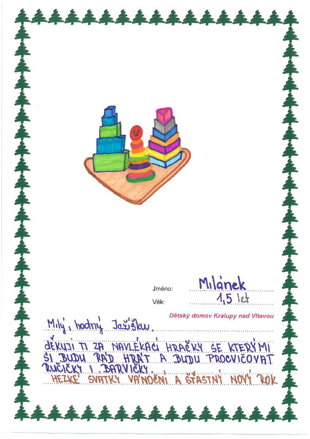 Jméno: Milánek
Věk: 1,5 let
Dětský domov Kralupy nad Vltavou
Milý, hodný Ježíšku,
děkuji ti za navlékací hračky se kterými
si budu rád hrát a budu procvičovat
ručičky i barvičky.
Hezké svátky vánoční a šťastný nový rok